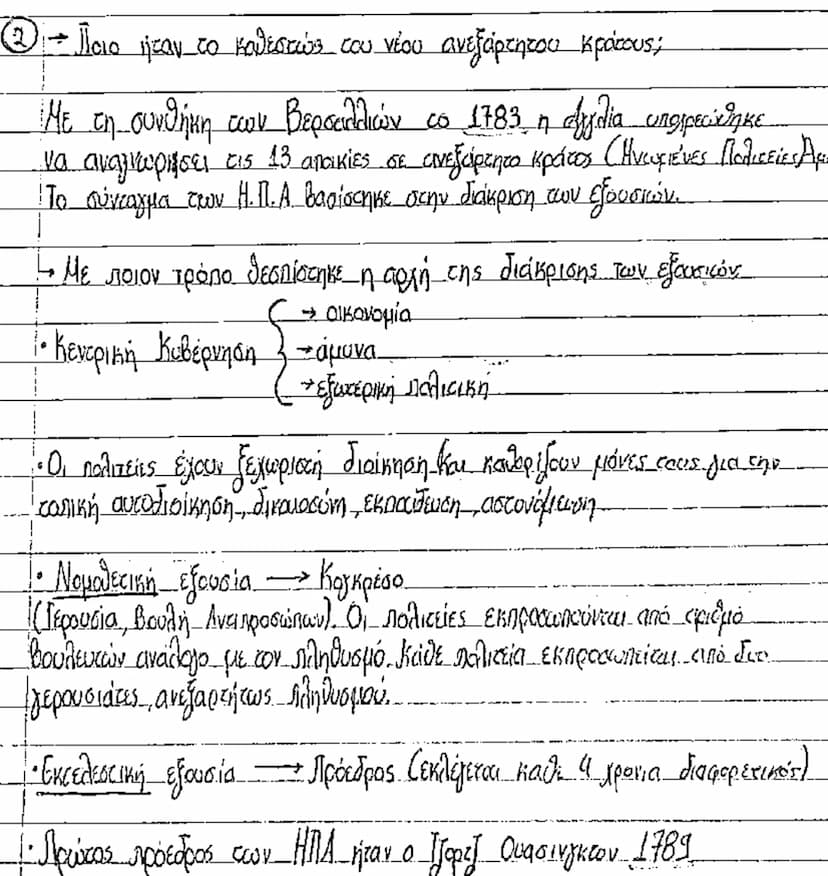 ② → Ποιο ήταν το καθεστώς του νέου ανεξάρτητου κράτους;
Με τη συνθήκη των Βερσαλλιών το 1783 η Αγγλία υποχρεώθηκε
να αναγνωρίσει τις 13 αποικίες σε ανεξάρτητο κράτος (Ηνωμένες Πολιτείες Αμ
Το σύνταγμα των Η.Π.Α βασίστηκε στην διάκριση των εξουσιών.
→ Με ποιον τρόπο θεσπίστηκε η αρχή της διάκρισης των εξουσιών
→ οικονομία
• Κεντρική Κυβέρνηση { → άμυνα
→ εξωτερική πολιτική
• Οι πολιτείες έχουν ξεχωριστή διοίκηση και καθορίζουν μόνες τους για την
τοπική αυτοδιοίκηση, δικαιοσύνη, εκπαίδευση, αστυνόμευση
• Νομοθετική εξουσία → Κογκρέσο
(Γερουσία, Βουλή Αντιπροσώπων). Οι πολιτείες εκπροσωπούνται από αριθμό
βουλευτών ανάλογο με τον πληθυσμό. Κάθε πολιτεία εκπροσωπείται από δυο
γερουσιάτες, ανεξαρτήτως πληθυσμού.
• Εκτελεστική εξουσία → Πρόεδρος (εκλέγεται κάθε 4 χρονια διαφορετικός)
• Πρώτος πρόεδρος των ΗΠΑ ήταν ο Τζορτζ Ουάσινγκτον 1789